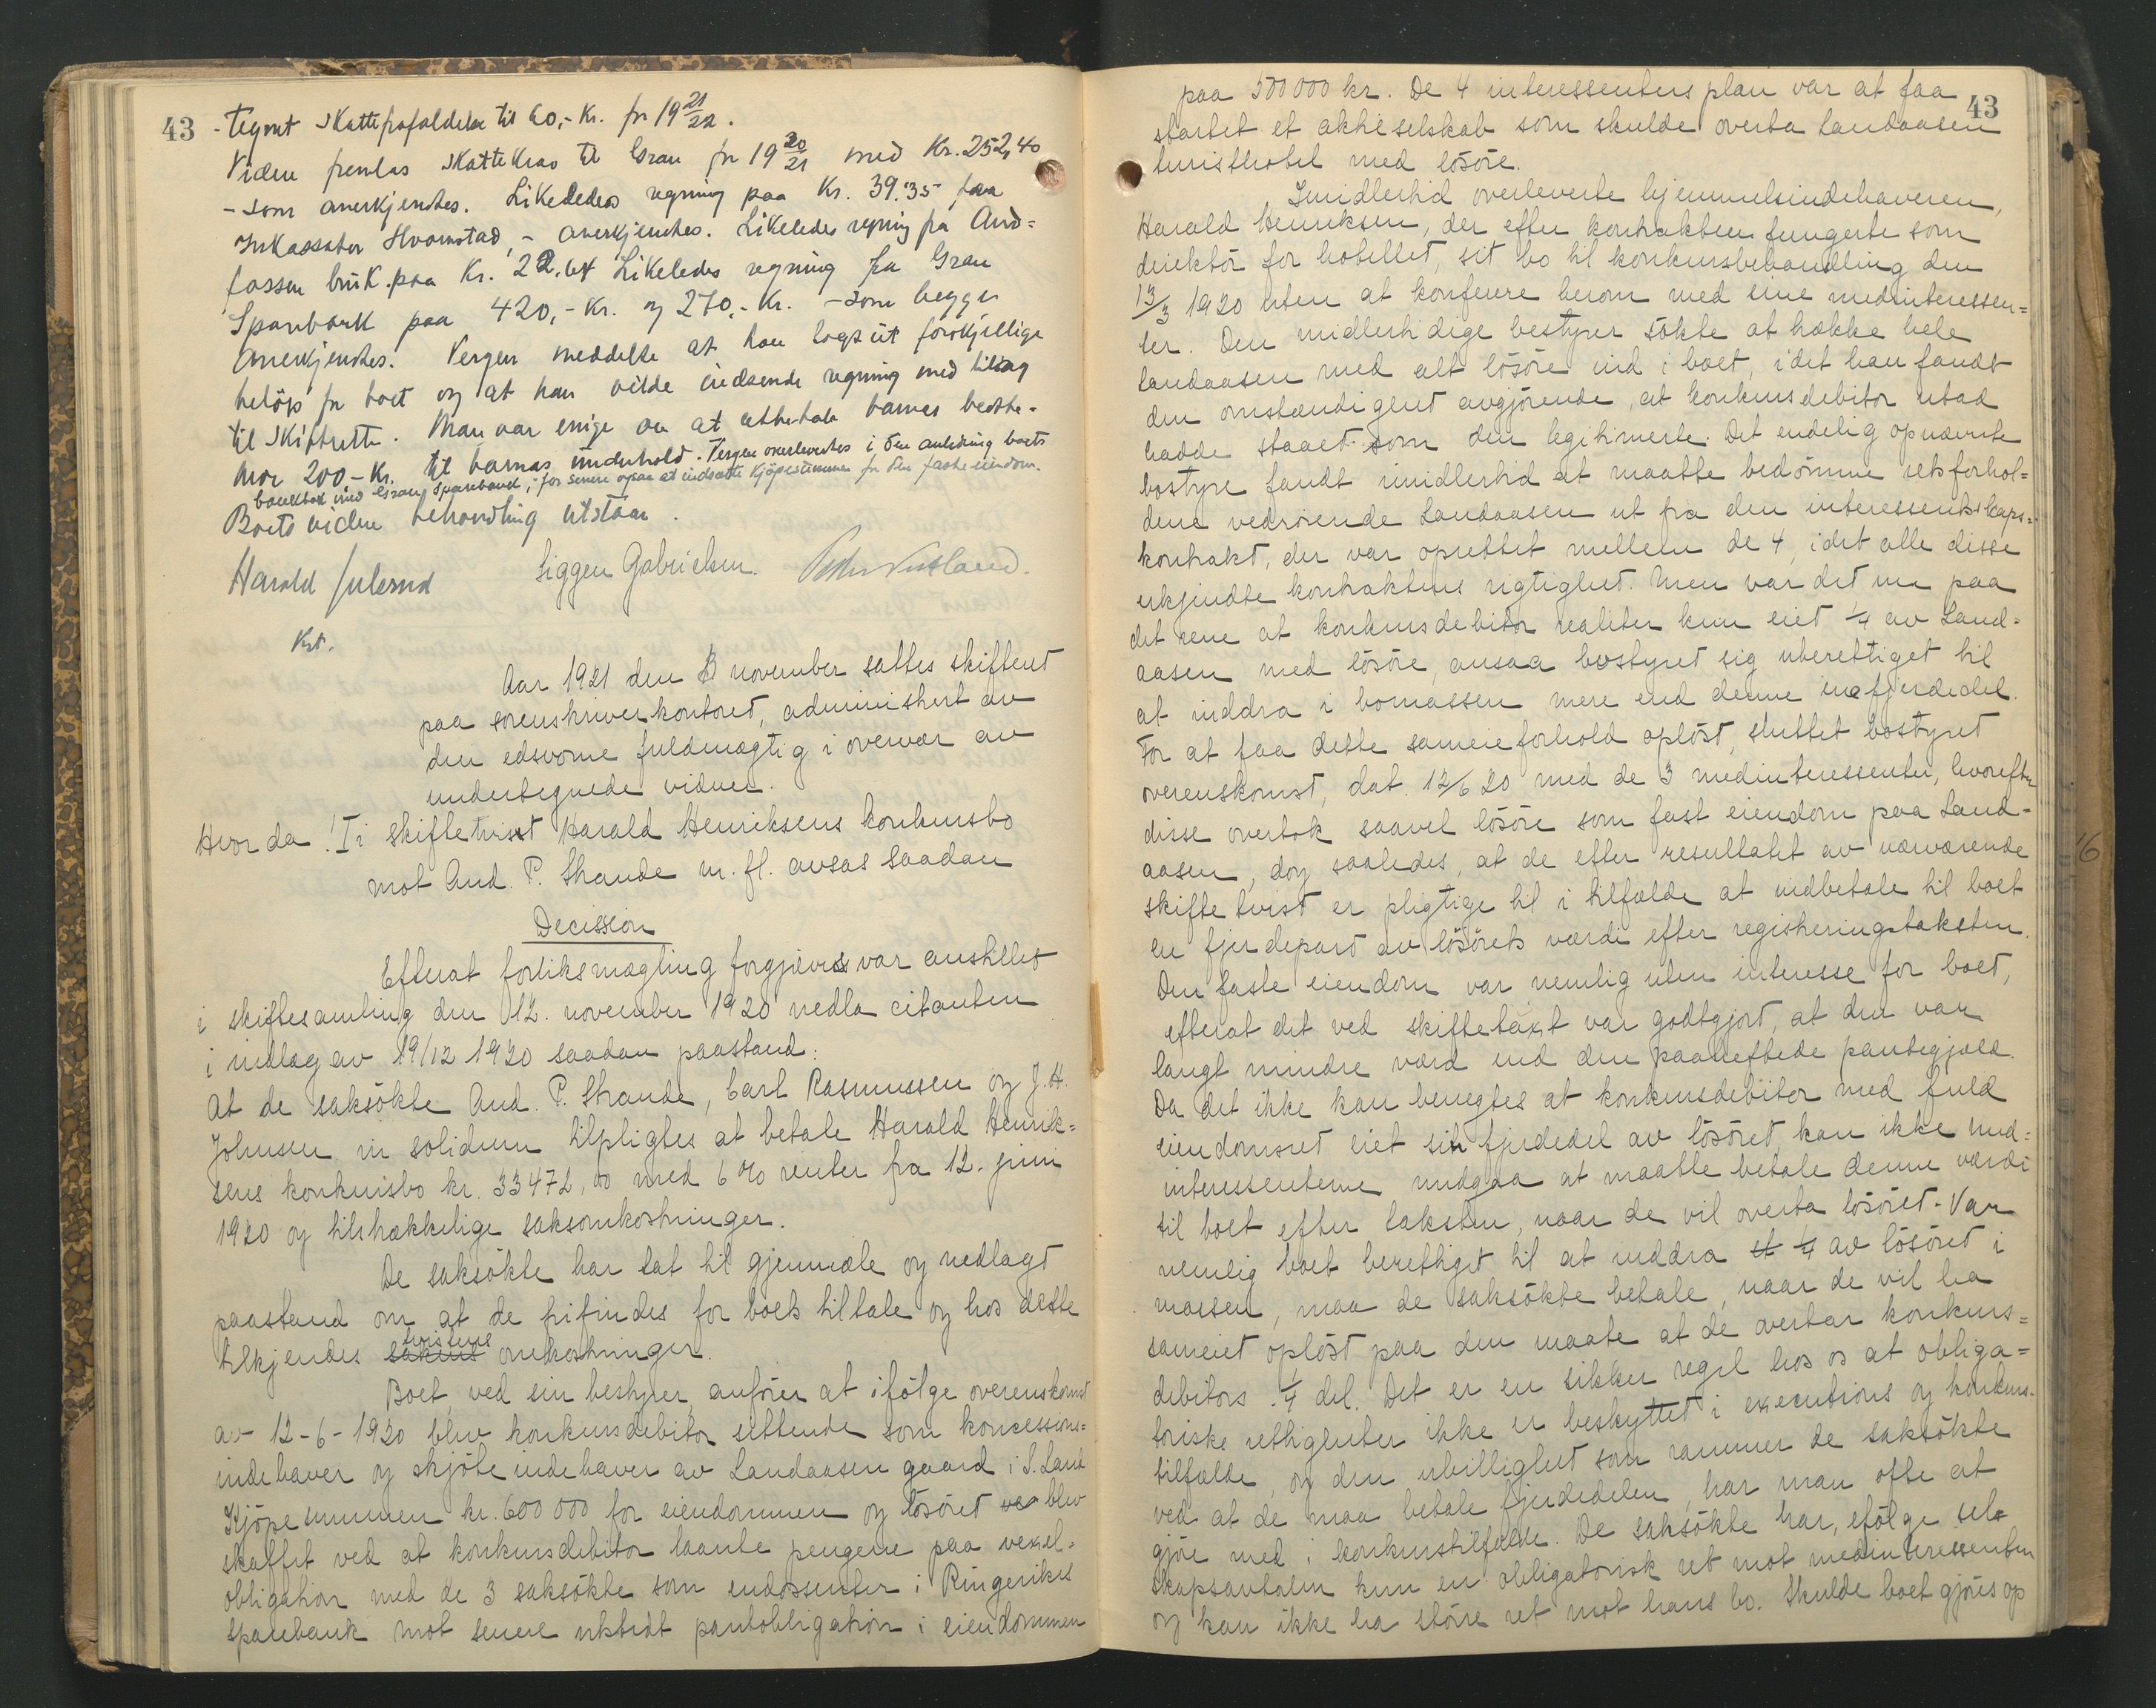 43 - tegnet Skattefrafaldelse til 60,- Kr. for 19 21/22.
Viden fremlas Skattekrav til Gran for 19 20/21 med Kr. 252,40
- som anerkjendtes. Likeledes regning paa Kr. 39.35 fra
Inkassator Hvamstad, - anerkjendtes. Likeledes regning fra And=
fossen bruk paa Kr. 22,64 Likeledes regning fra Gran
Sparebank paa 420,- Kr. og 270,- Kr. - som begge
anerkjendtes. Vergen meddelte at han lagt ut forskjellige
beløp for boet og at han vilde indsende regning med bilag
til Skifteretten. Man var enige om at utbetale barnas bedste-
mor 200,- Kr. til barnas underhold. Vergen overlevertes i den anledning boets
bankbok med Gran Sparebank, - for senere ogsaa at indsætte kjøpesummen for den faste eiendom.
Boets videre behandling utstaar.
Harald Julsrud Siggen Gabrielsen. Peder Vestland.
Kst.
Aar 1921 den 8 november sattes skifteret
paa sorenskriverkontoret, administrert av
den edsvorne fuldmægtig i overvær av
undertegnede vidner.
Hvor da! I i skiftetvist Harald Henriksens konkursbo
mot And. P. Strande m. fl. avsas saadan
Decission
Efterat forliksmægling forgjæves var anstillet
i skiftesamling den 12. november 1920 nedla citanten
i indlæg av 19/12 1920 saadan paastand:
At de saksøkte And. P. Strande, Carl Rasmussen og J. H.
Johnsen in solidum tilpligtes at betale Harald Henrik=
sens konkursbo kr. 33472,00 med 6 % renter fra 12. juni
1920 og tilstrækkelige saksomkostninger.
De saksøkte har tat til gjenmæle og nedlagt
paastand om at de frifindes for boets tiltale og hos dette
tilkjendes sakens tvistens omkostninger.
Boet, ved sin bestyrer, anfører at ifølge overenskomst
av 12-6-1920 blev konkursdebitor sittende som koncessions=
indehaver og skjøteindehaver av Landaasen gaard i S. Land
Kjøpesummen kr. 600 000 for eiendommen og løsøret var blev
skaffet ved at konkursdebitor laante pengene paa vexel-
obligation med de 3 saksøkte som endossenter i Ringerikes
sparebank mot senere utstedt pantobligation i eiendommen
43
paa 500 000 kr. De 4 interessenters plan var at faa
startet et aktieselskab som skulde overta Landaasen
turisthotel med løsøre.
Imidlertid overleverte hjemmelsindehaveren,
Harald Henriksen, der efter kontrakten fungerte som
direktør for hotellet, sit bo til konkursbehandling den
13/3 1920 uten at konferere herom med sine medinteressen=
ter. Den midlertidige bestyrer søkte at trække hele
Landaasen med alt løsøre ind i boet, idet han fandt
den omstændighet avgjørende, at konkursdebitor utad
hadde staaet som den legitimerte. Det endelig opnævnte
bostyre fandt imidlertid at maatte bedømme retsforhol=
dene vedrørende Landaasen ut fra den interessentskaps=
kontrakt, der var oprettet mellem de 4, idet alle disse
erkjendte kontraktens rigtighet. Men var det nu paa
det rene at konkursdebitor realiter kun eiet 1/4 av Land=
aasen med løsøre, ansaa bostyret sig uberettiget til
at inddra i bomassen mere end denne ene fjerdedel.
For at faa dette sameieforhold opløst, sluttet bostyret
overenskomst, dat. 12/6 20 med de 3 medinteressenter, hvorefter
disse overtok saavel løsøre som fast eiendom paa Land=
aasen, dog saaledes, at de efter resultatet av nærværende
skiftetvist er pligtige til i tilfælde at indbetale til boet
en fjerdepart av løsørets værdi efter registreringstaksten.
Den faste eiendom var nemlig uten interesse for boet,
efterat det ved skiftetaxt var godtgjort, at den var
langt mindre værd end den paaheftede pantegjæld.
Da det ikke kan benegtes at konkursdebitor med fuld
eiendomsret eiet sin fjerdedel av løsøret, kan ikke med=
interessenterne undgaa at maatte betale denne værdi
til boet efter taksten, naar de vil overta løsøret. Var
nemlig boet berettiget til at inddra 1/4 av løsøret i
massen, maa de saksøkte betale, naar de vil ha
sameiet opløst paa den maate at de overtar konkurs=
debitors 1/4 del. Det er en sikker regel hos os at obliga=
toriske rettigheter ikke er beskyttet i executions og konkurs-
tilfælde, og den ubillighet som rammer de saksøkte
ved at de maa betale fjerdedelen, har man ofte at
gjøre med i konkurstilfælde. De saksøkte har, ifølge sel=
skapsavtalen kun en obligatorisk ret mot medinteressenten
og kan ikke ha større ret mot hans bo. Skulde boet gjøres op
16